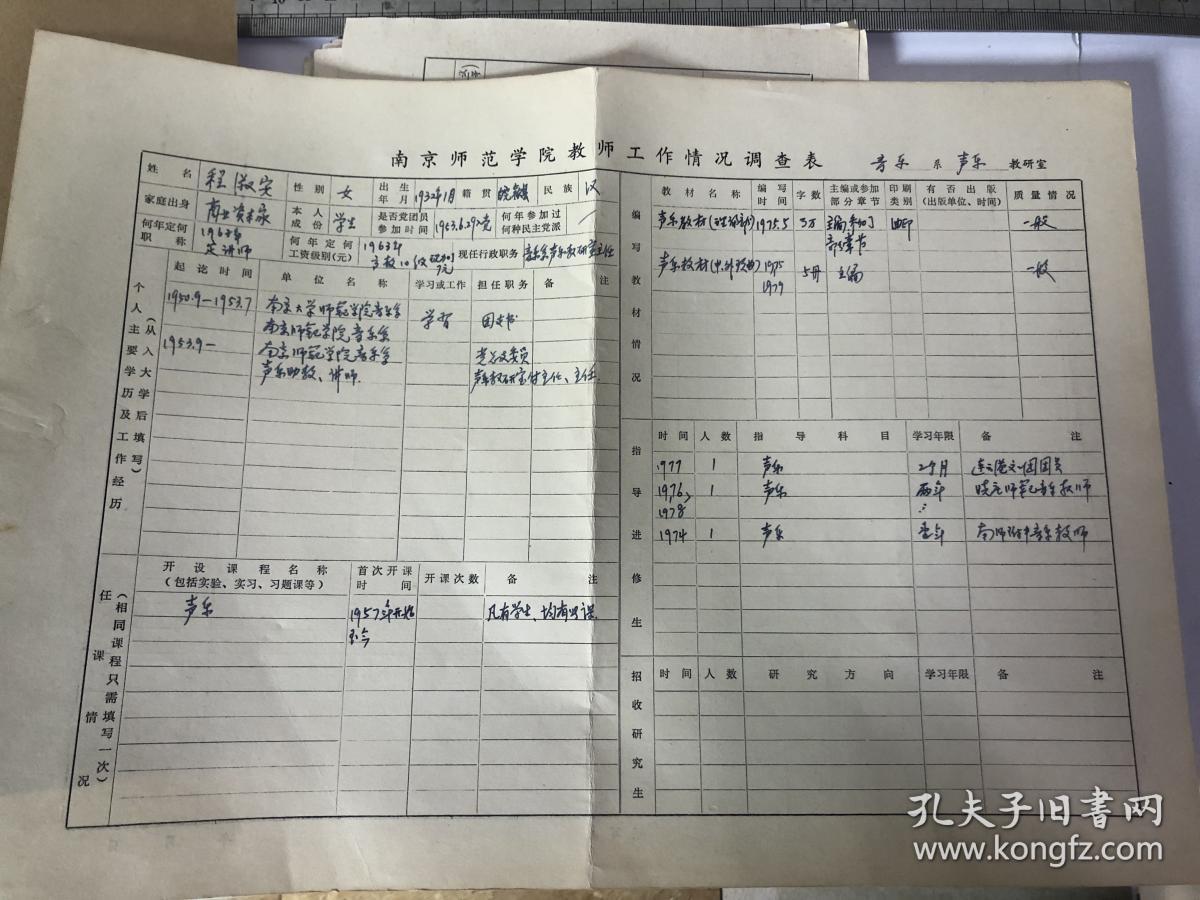 南京师范学院教师工作情况调查表 音乐 系 声乐 教研室
姓名 程淑安 性别 女 出生年月 1932年1月 籍贯 民族 汉
家庭出身 商业资本家 本人成份 学生 是否党团员参加时间 1953.6.29入党 何年参加过何种民主党派
何年定何职称 1963年定讲师 何年定何工资级别(元) 1963年 高教10级 现任行政职务 音乐系声乐教研室主任
个人主要学历及工作经历
(从入大学后填写)
起讫时间 单位名称 学习或工作 担任职务 备注
1950.9—1953.7 南京大学师范学院音乐系 学习 团支书
南京师范学院音乐系
1953.9— 南京师范学院音乐系 党总支委员
声乐助教、讲师. 声乐教研室付主任、主任.
任课情况
(相同课程只需填写一次)
开设课程名称
(包括实验、实习、习题课等)
首次开课时间 开课次数 备注
声乐 1957年开始 凡有学生、均有此课.
至今
编写教材情况
教材名称 编写时间 字数 主编或参加部分章节 印刷类别 有否出版(出版单位、时间) 质量情况
声乐教材(理论部分) 1975.5 3万 主编参加了 油印 一般
部分章节
声乐教材(中、外歌曲) 1975 5册 主编 一般
1979
指导进修生
时间 人数 指导科目 学习年限 备注
1977 1 声乐 2个月 连云港文工团团员
1976、 1 声乐 两年 晓庄师范音乐教师
1978
1974 1 声乐 壹年 南师附中音乐教师
招收研究生
时间 人数 研究方向 学习年限 备注
孔夫子旧书网
www.kongfz.com